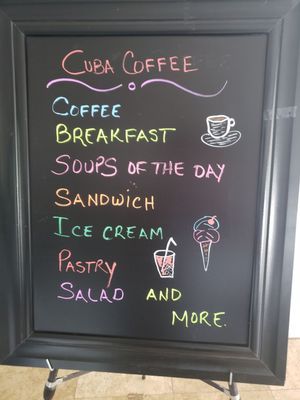 CUBA COFFEE
COFFEE
BREAKFAST
SOUPS OF THE DAY
SANDWICH
ICE CREAM
PASTRY
SALAD AND
MORE.